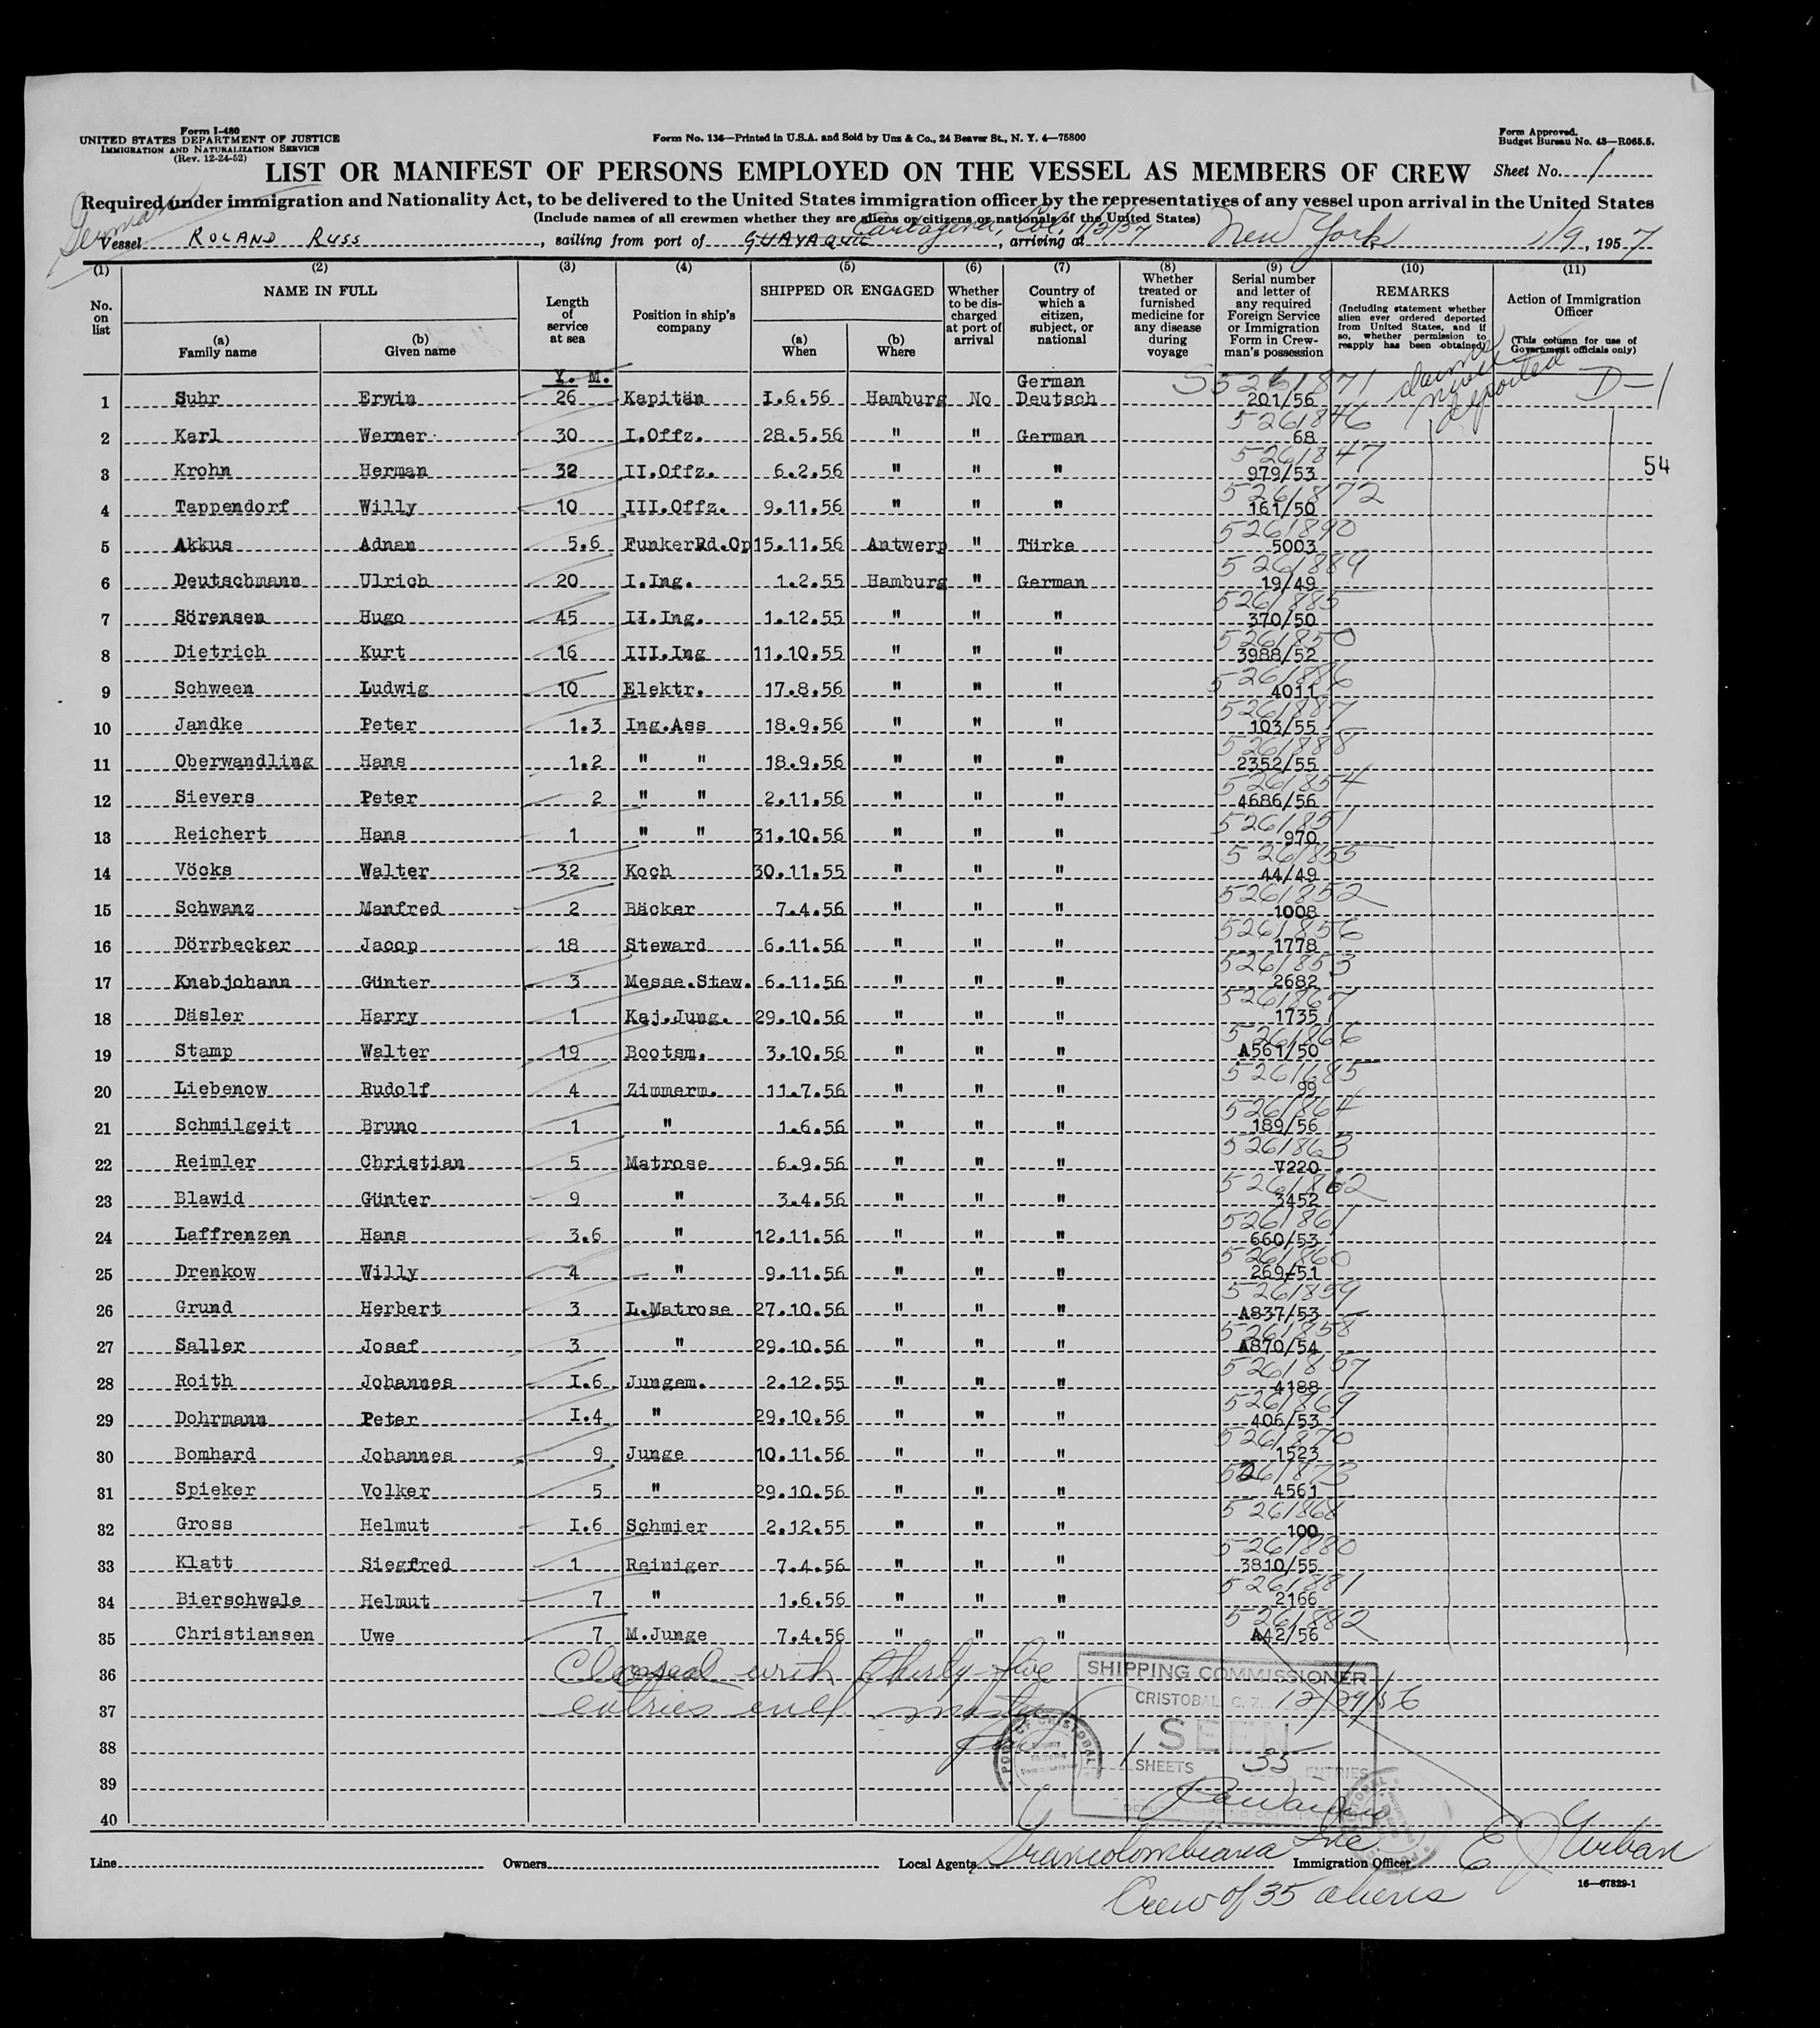 Form I-480
UNITED STATES DEPARTMENT OF JUSTICE
IMMIGRATION AND NATURALIZATION SERVICE
(Rev. 12-24-52)
Form No. 136—Printed in U.S.A. and Sold by Unz & Co., 24 Beaver St., N. Y. 4—75800
Form Approved.
Budget Bureau No. 43—R065.5.
LIST OR MANIFEST OF PERSONS EMPLOYED ON THE VESSEL AS MEMBERS OF CREW Sheet No. 1
Required under immigration and Nationality Act, to be delivered to the United States immigration officer by the representatives of any vessel upon arrival in the United States
(Include names of all crewmen whether they are aliens or citizens or nationals of the United States)
German
Cartagena, Col. 1/3/57
Vessel ROLAND RUSS, sailing from port of GUAYAQUIL, arriving at New York, 1/9, 1957
(1) (2) (3) (4) (5) (6) (7) (8) (9) (10) (11)
No. on list NAME IN FULL (a) Family name (b) Given name Length of service at sea Position in ship's company SHIPPED OR ENGAGED (a) When (b) Where Whether to be discharged at port of arrival Country of which a citizen, subject, or national Whether treated or furnished medicine for any disease during voyage Serial number and letter of any required Foreign Service or Immigration Form in Crewman's possession REMARKS (Including statement whether alien ever ordered deported from United States, and if so, whether permission to reapply has been obtained) Action of Immigration Officer (This column for use of Government officials only)
Y. M. German 5261871 claims never deported D-1
1 Suhr Erwin 26 Kapitän I.6.56 Hamburg No Deutsch 201/56
5261846
2 Karl Werner 30 I.Offz. 28.5.56 " " German 68
5261847
3 Krohn Herman 32 II.Offz. 6.2.56 " " " 979/53 54
5261872
4 Tappendorf Willy 10 III.Offz. 9.11.56 " " " 161/50
5261890
5 Akkus Adnan 5.6 FunkerRd.Op 15.11.56 Antwerp " Türke 5003
5261889
6 Deutschmann Ulrich 20 I.Ing. 1.2.55 Hamburg " German 19/49
5261885
7 Sörensen Hugo 45 II.Ing. 1.12.55 " " " 370/50
5261850
8 Dietrich Kurt 16 III.Ing 11.10.55 " " " 3988/52
5261886
9 Schween Ludwig 10 Elektr. 17.8.56 " " " 4011
5261887
10 Jandke Peter 1.3 Ing.Ass 18.9.56 " " " 103/55
5261888
11 Oberwandling Hans 1.2 " " 18.9.56 " " " 2352/55
5261854
12 Sievers Peter 2 " " 2.11.56 " " " 4686/56
5261851
13 Reichert Hans 1 " " 31.10.56 " " " 970
5261855
14 Vöcks Walter 32 Koch 30.11.55 " " " 44/49
5261852
15 Schwanz Manfred 2 Bäcker 7.4.56 " " " 1008
5261856
16 Dörrbecker Jacop 18 Steward 6.11.56 " " " 1778
5261853
17 Knabjohann Günter 3 Messe.Stew. 6.11.56 " " " 2682
5261867
18 Däsler Harry 1 Kaj.Jung. 29.10.56 " " " 1735
5261866
19 Stamp Walter 19 Bootsm. 3.10.56 " " " A561/50
5261685
20 Liebenow Rudolf 4 Zimmerm. 11.7.56 " " " 99
5261864
21 Schmilgeit Bruno 1 " 1.6.56 " " " 189/56
5261863
22 Reimler Christian 5 Matrose 6.9.56 " " " V220
5261862
23 Blawid Günter 9 " 3.4.56 " " " 3452
5261861
24 Laffrenzen Hans 3.6 " 12.11.56 " " " 660/53
5261860
25 Drenkow Willy 4 " 9.11.56 " " " 269-51
5261859
26 Grund Herbert 3 L.Matrose 27.10.56 " " " A837/53
5261858
27 Saller Josef 3 " 29.10.56 " " " A870/54
5261857
28 Roith Johannes I.6 Jungem. 2.12.55 " " " 4188
5261869
29 Dohrmann Peter I.4 " 29.10.56 " " " 406/53
5261870
30 Bomhard Johannes 9 Junge 10.11.56 " " " 1523
5261873
31 Spieker Volker 5 " 29.10.56 " " " 4561
5261868
32 Gross Helmut I.6 Schmier 2.12.55 " " " 100
5261880
33 Klatt Siegfred 1 Reiniger 7.4.56 " " " 3810/55
5261881
34 Bierschwale Helmut 7 " 1.6.56 " " " 2166
5261882
35 Christiansen Uwe 7 M.Junge 7.4.56 " " " A42/56
36 Closed with thirty-five SHIPPING COMMISSIONER
37 entries incl master CRISTOBAL C. Z. 12/29/56
38 SEEN
PORT OF CRISTOBAL
39 1 SHEETS 35 ENTRIES
40 DEPUTY SHIPPING COMMISSIONER
Line Owners Local Agents Grancolombiana Inc. Immigration Officer E J Urban
16—67829-1
Crew of 35 aliens